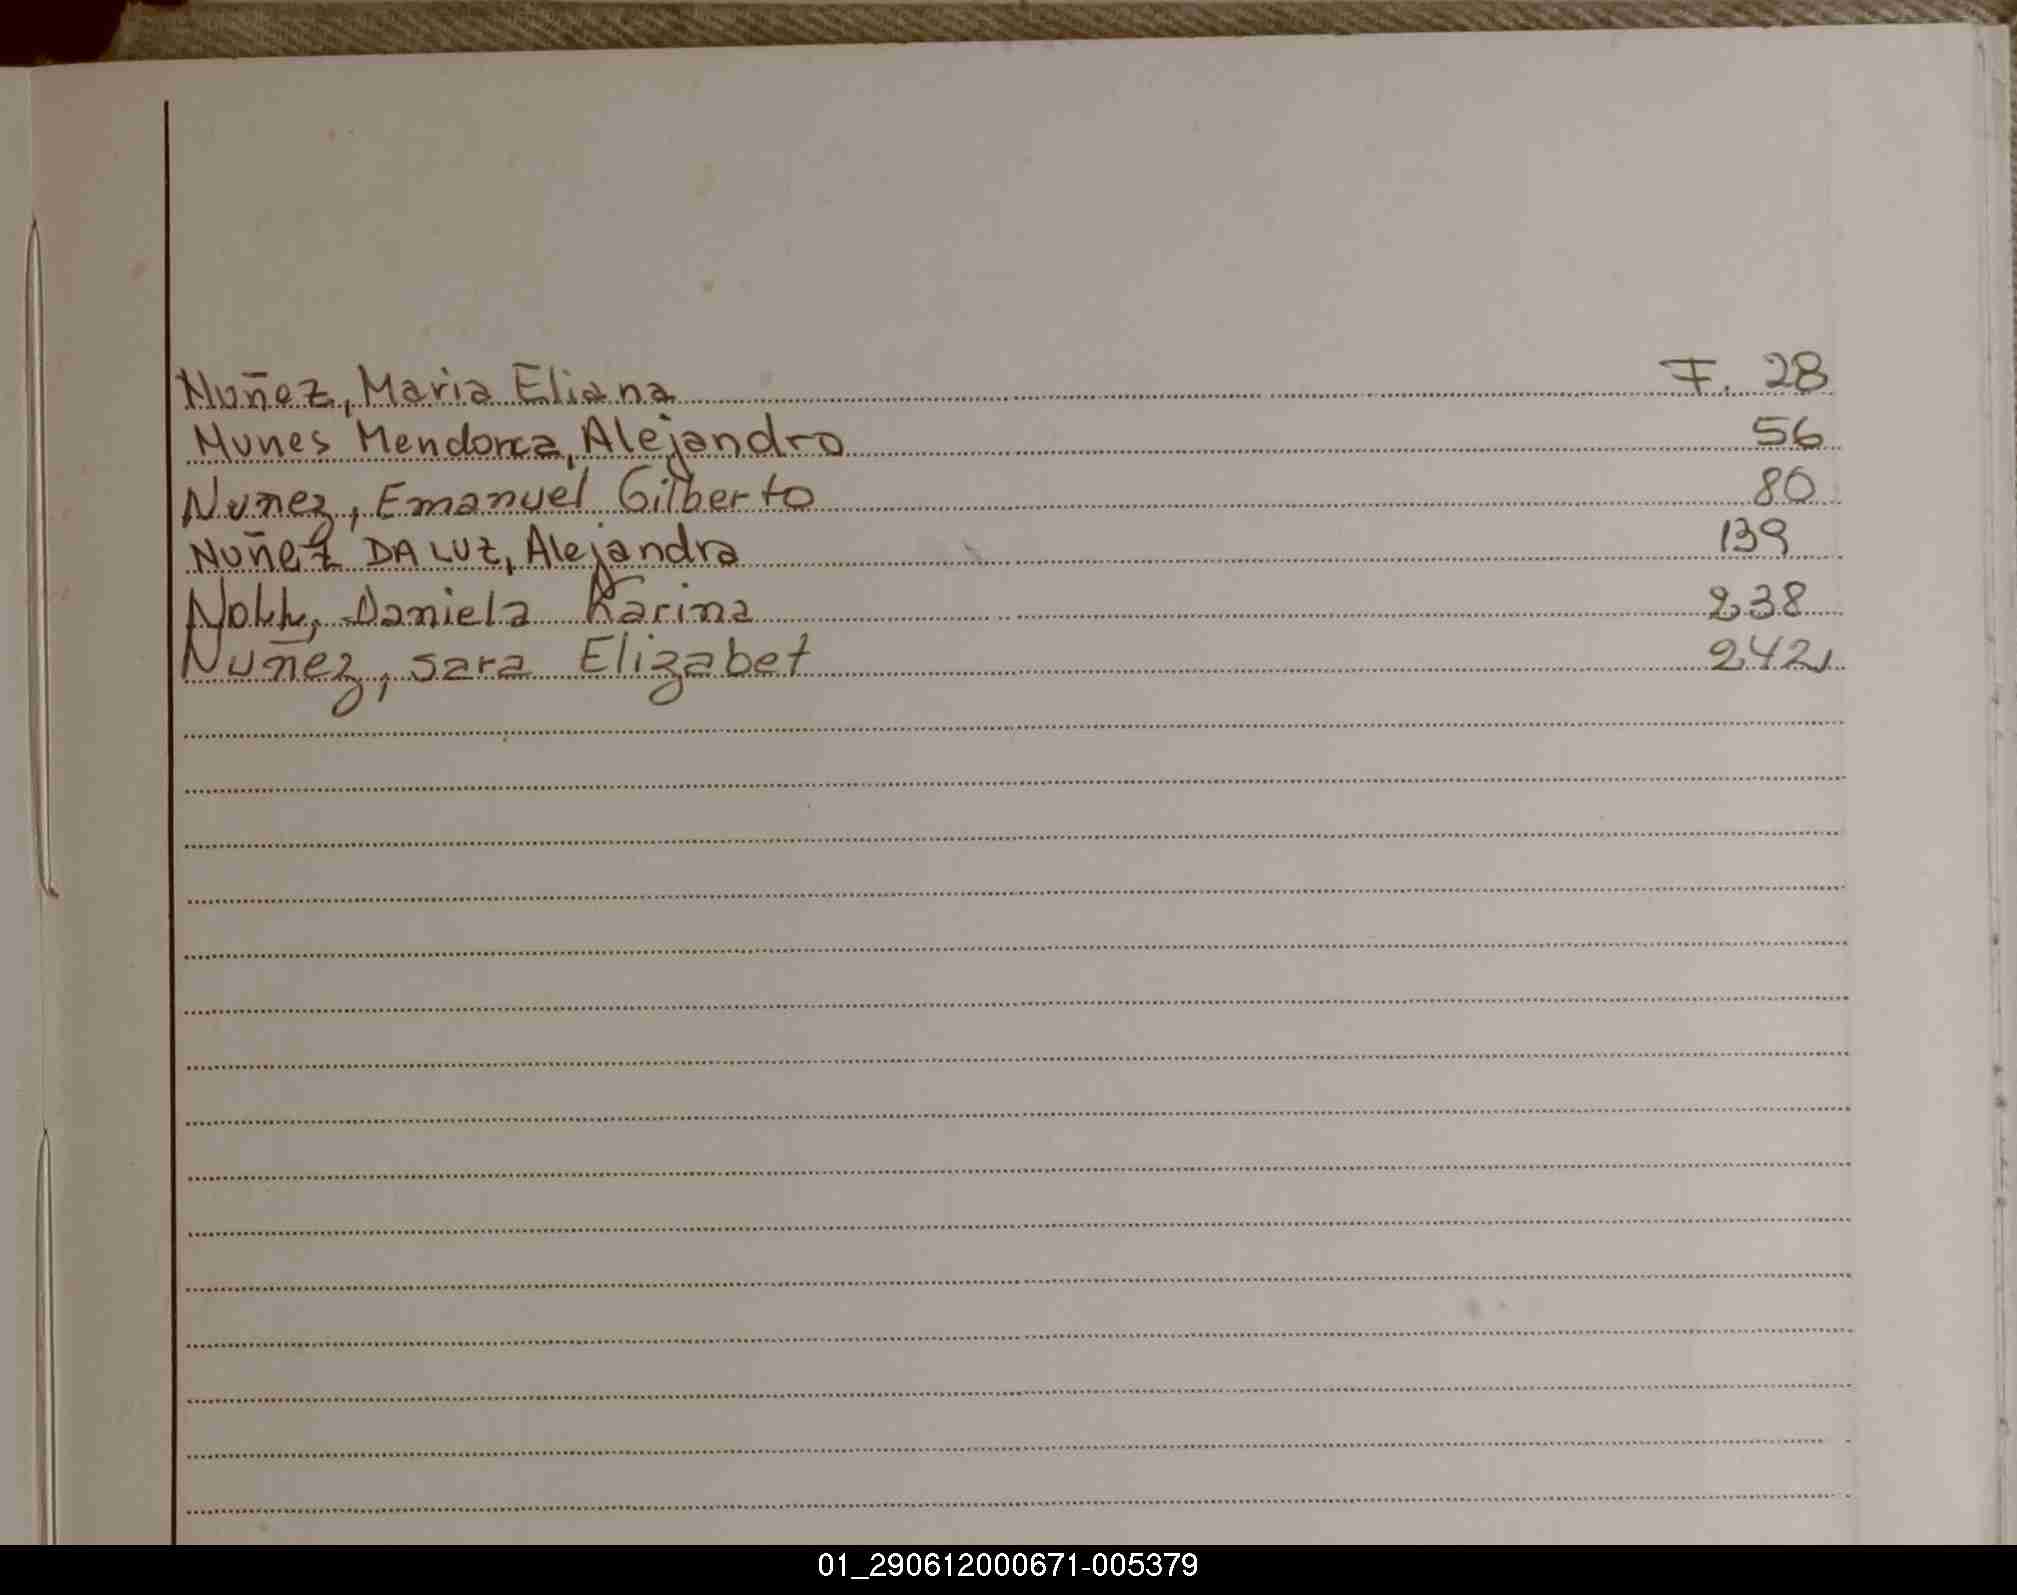 Nuñez, Maria Eliana F. 28
Nunes Mendonca, Alejandro 56
Nunez, Emanuel Gilberto 80
Nuñez DA LUZ, Alejandra 139
Noll, Daniela Karina 238
Nuñez, sara Elizabet 242
01_290612000671-005379